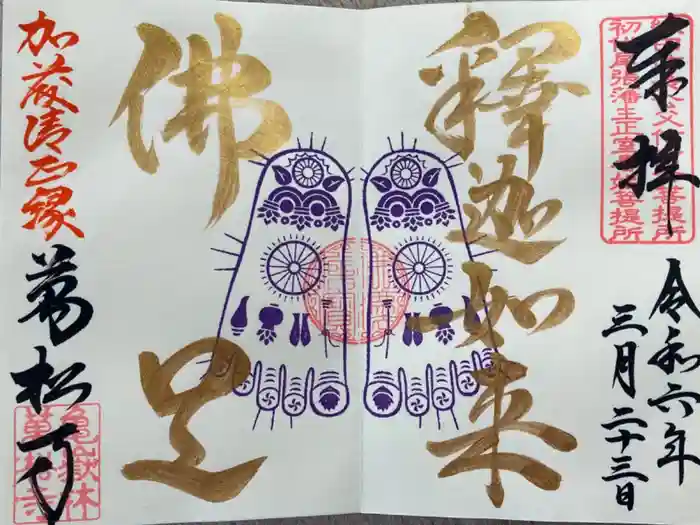 奉拝
初代尾張藩主正室春姫菩提所
令和六年
三月二十三日
釋迦如来
佛足
加藤清正縁
萬松寺
亀嶽林
萬松寺